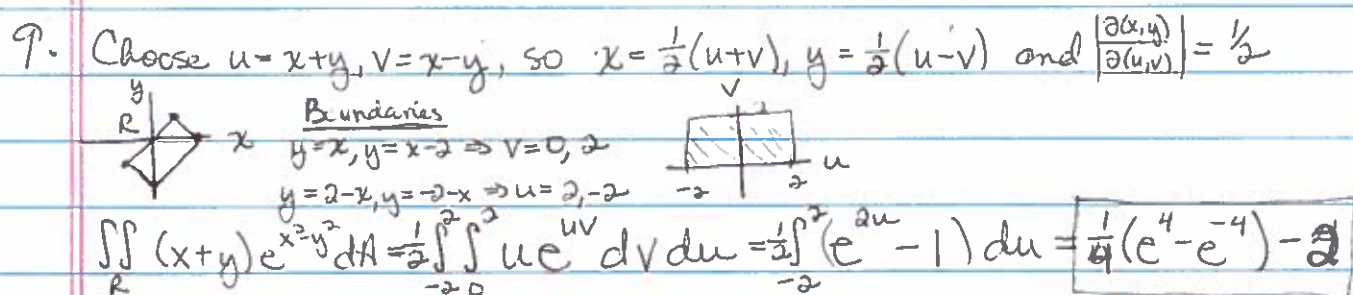 9. Choose u = x+y, v = x-y, so x = 1/2(u+v), y = 1/2(u-v) and |∂(x,y)/∂(u,v)| = 1/2
y
R
x
Boundaries
y=x, y=x-2 ⇒ v=0, 2
y=2-x, y=-2-x ⇒ u=2,-2
v
2
u
-2 2
∬_R (x+y)e^{x²-y²} dA = 1/2 ∫_{-2}^{2} ∫_{0}^{2} u e^{uv} dv du = 1/2 ∫_{-2}^{2} (e^{2u} - 1) du = 1/4(e^4 - e^{-4}) - 2